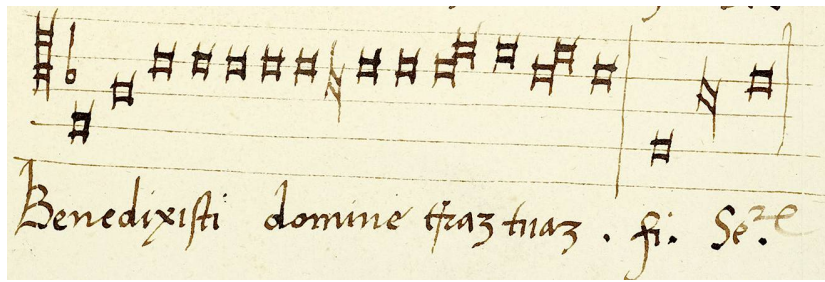 Benedixisti domine tr̃az tuaz . fi. Se².